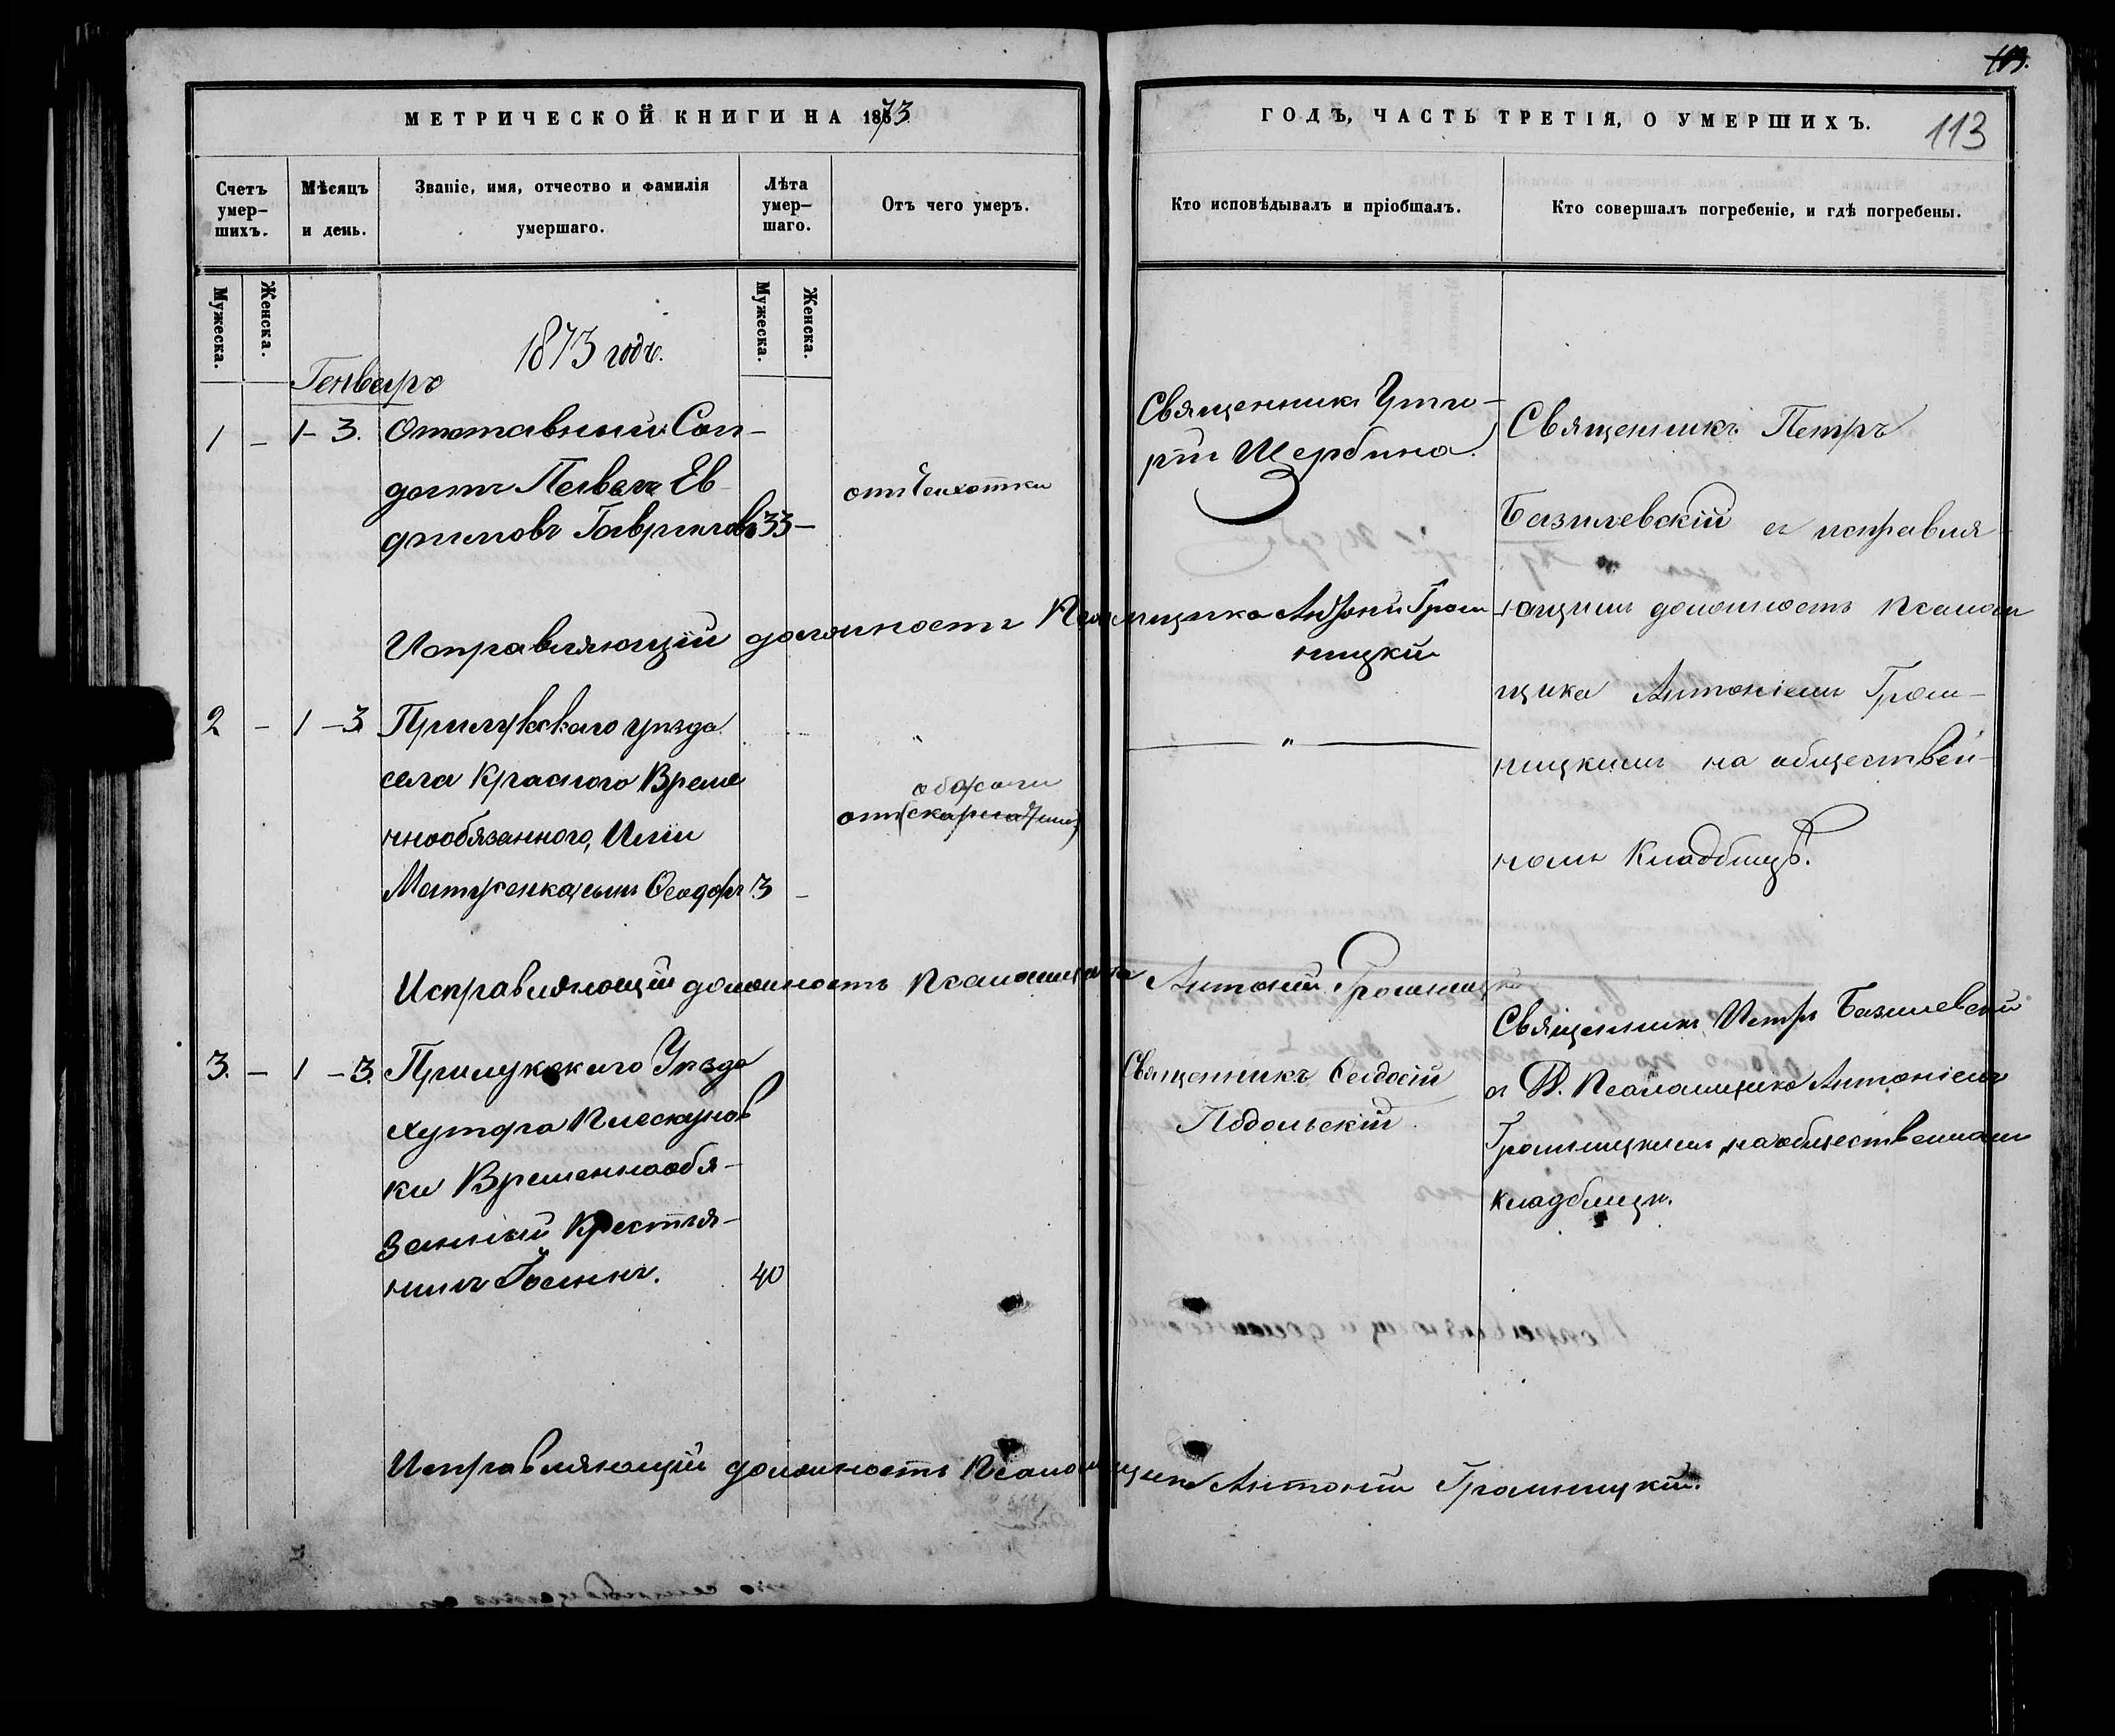 113.
МЕТРИЧЕСКОЙ КНИГИ НА 1873
ГОДЪ, ЧАСТЬ ТРЕТІЯ, О УМЕРШИХЪ.
113
Счетъ умер-
шихъ.
Мѣсяцъ
и день.
Званіе, имя, отчество и фамилія
умершаго.
Лѣта
умер-
шаго.
Отъ чего умеръ.
Кто исповѣдывалъ и пріобщалъ.
Кто совершалъ погребеніе, и гдѣ погребены.
Мужеска.
Женска.
Мужеска.
Женска.
1873 годъ.
Генварь
1 - 1-3. Отставный Сол-
датъ Павелъ Ев-
фимовъ Гавриловъ 33 -
отъ чахотки
Священникъ
рій Щербина.
Священникъ Петръ
Базилевскій съ исправля-
ющимъ должность псалом
щика Антоніемъ Гром-
ницкимъ на обществен-
номъ Кладбищѣ.
Исправляющій должность Псаломщика Антоній Гром
ницкій
2 - 1 - 3 Прилукскаго уѣзда
села Краснаго Време
ннообязанного, Иліи
Матусенка, сынъ Ѳеодоръ 3 -
"
обжоги
отъ (скарлатины)
"
Исправляющій должность Псаломщика Антоній Громницкій
3. - 1 - 3. Прилукскаго Уѣзда
хутора Плескунов
ки Временнообя-
занный Крестья-
нинъ Іоаннъ. 40
Священникъ Ѳеодосій
Подольскій.
Священникъ Петръ Базилевскій
съ Псаломщика Антоніемъ
Громницкимъ на общественномъ
кладбищѣ.
Исправляющій должность Псаломщика Антоній Громницкій.